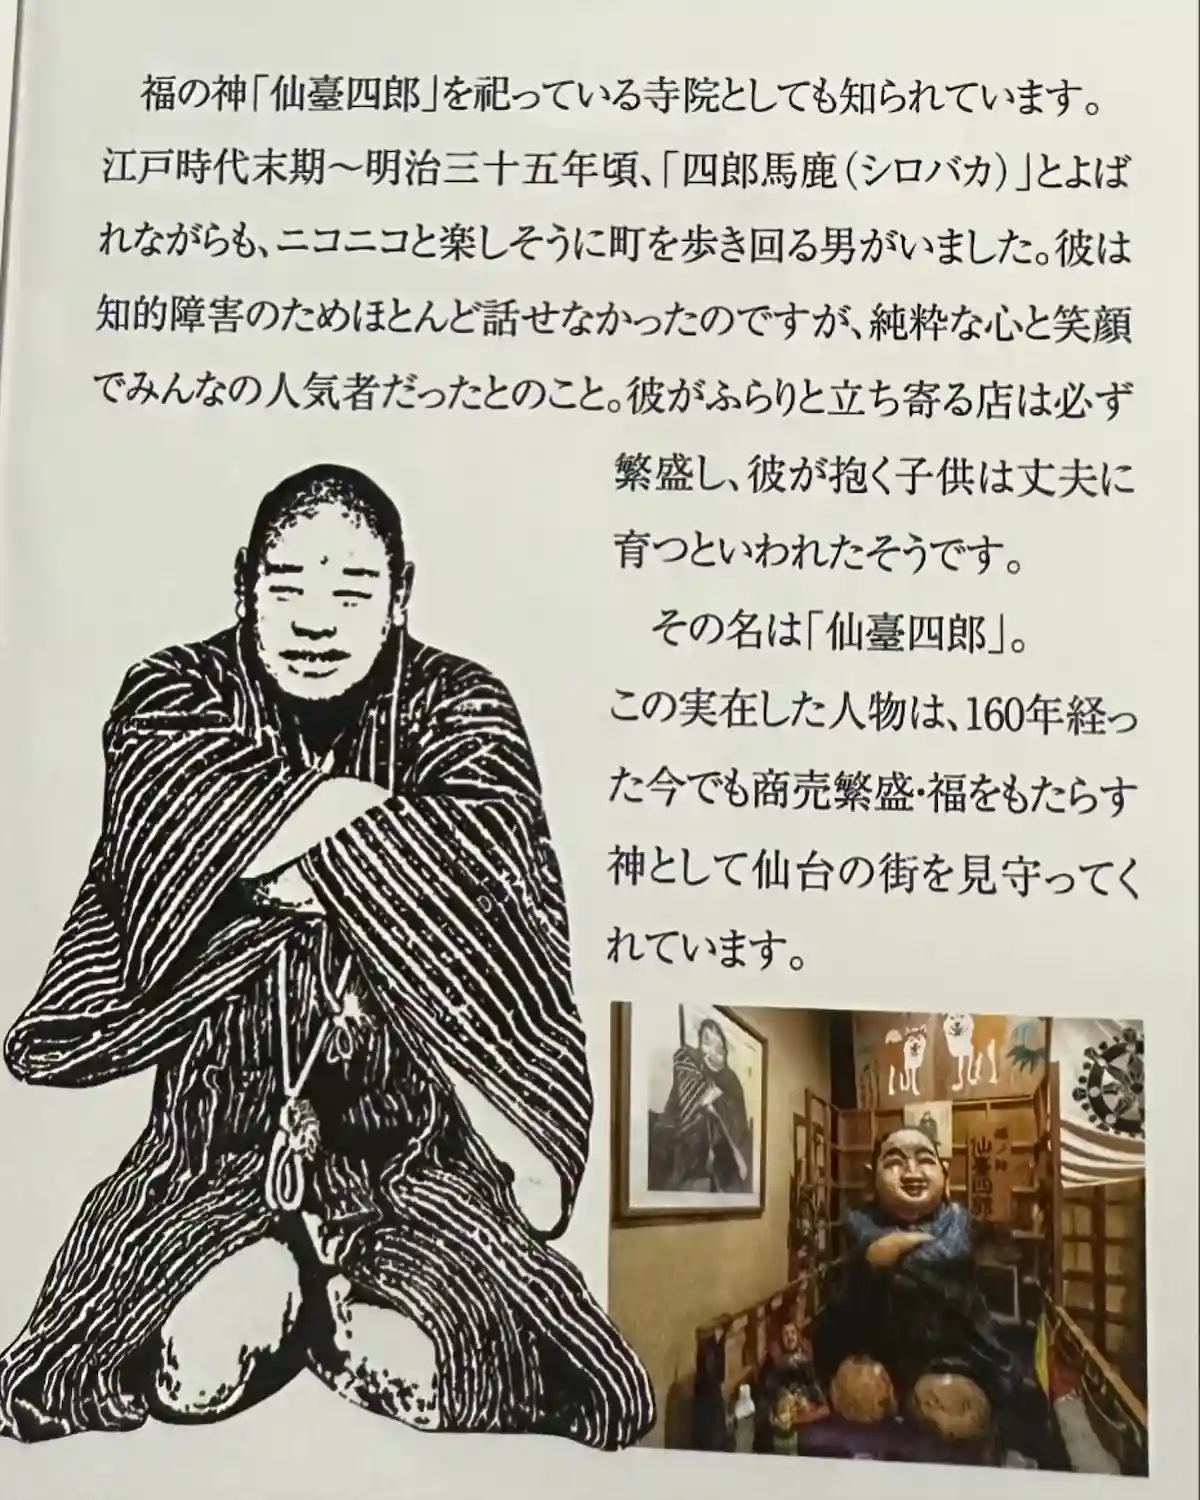 福の神「仙臺四郎」を祀っている寺院としても知られています。
江戸時代末期～明治三十五年頃、「四郎馬鹿（シロバカ）」とよば
れながらも、ニコニコと楽しそうに町を歩き回る男がいました。彼は
知的障害のためほとんど話せなかったのですが、純粋な心と笑顔
でみんなの人気者だったとのこと。彼がふらりと立ち寄る店は必ず
繁盛し、彼が抱く子供は丈夫に
育つといわれたそうです。
その名は「仙臺四郎」。
この実在した人物は、160年経っ
た今でも商売繁盛・福をもたらす
神として仙台の街を見守ってく
れています。
仙臺四郎